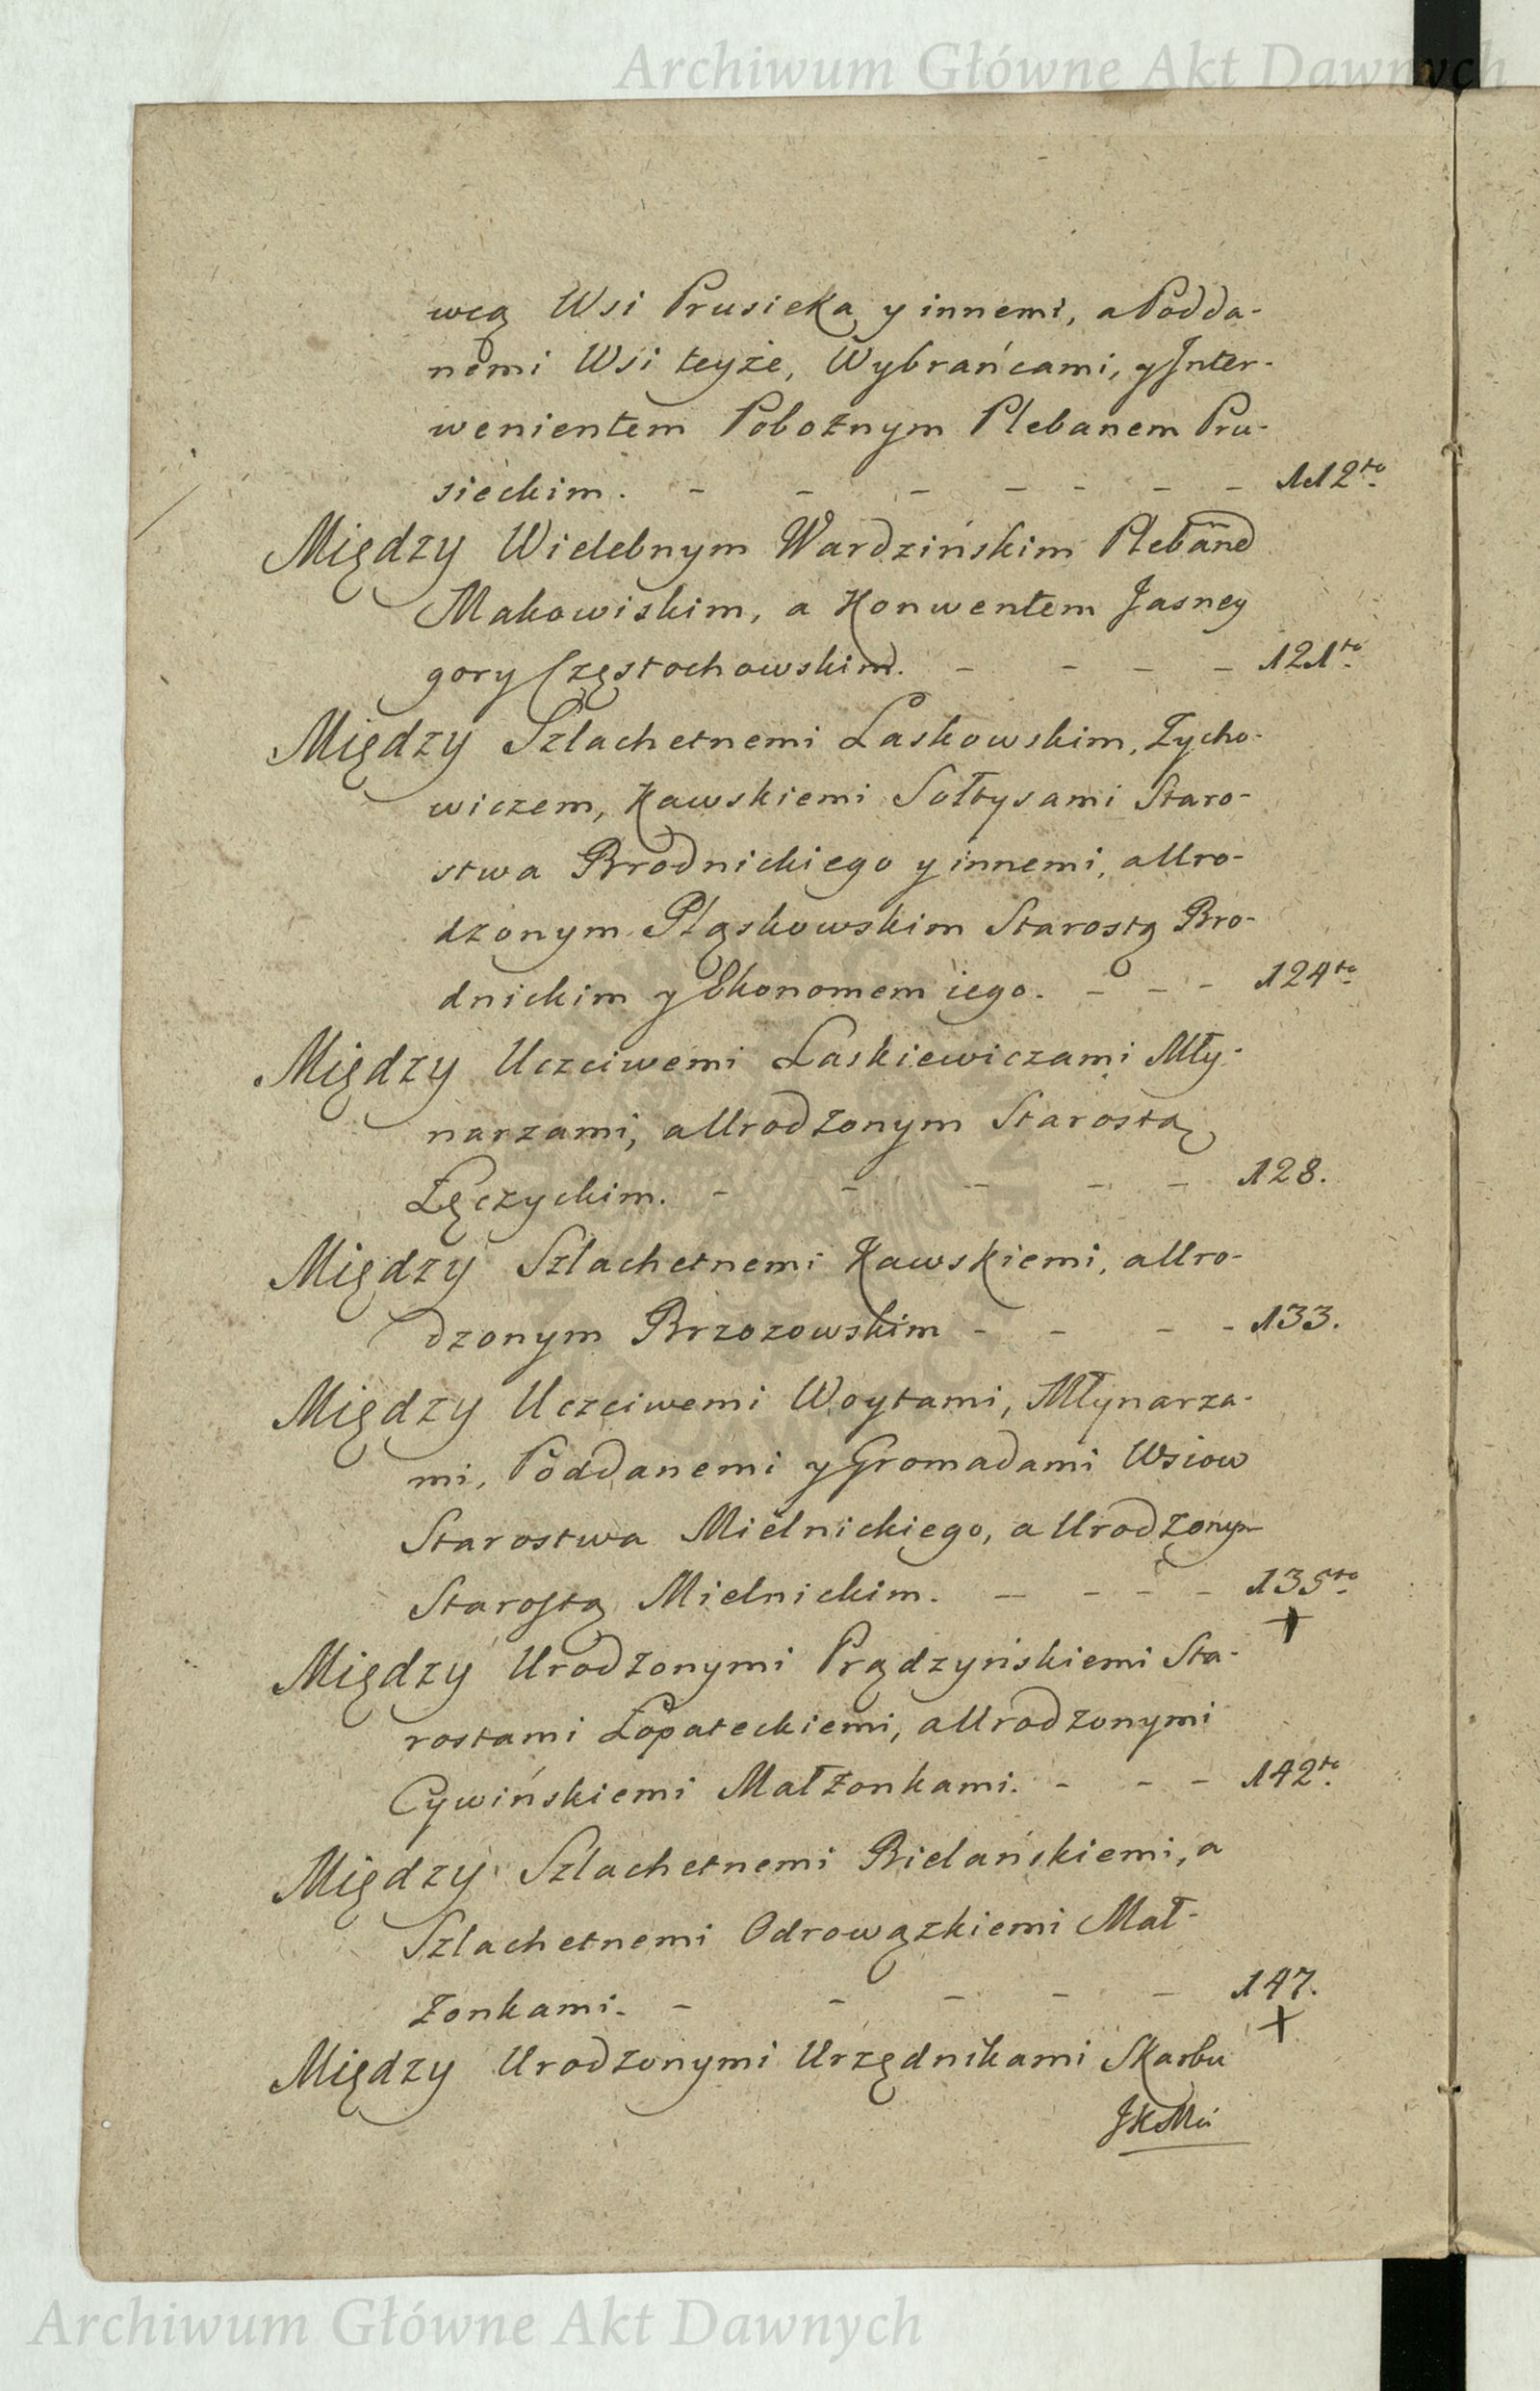 Archiwum Główne Akt Dawnych
wcą Wsi Prusieka y innemi, a Podda-
nemi Wsi teyże, Wybrańcami, y Inter-
wenientem Pobożnym Plebanem Pru-
sieckim. - - - - - - - 112to.
Między Wielebnym Wardzińskim Pleband
Makowiskim, a Konwentem Jasney
gory Częstochowskim. - - - - 121to.
Między Szlachetnemi Laskowskim, Zycho-
wiczem, Kawskiemi Sołtysami Staro-
stwa Brodnickiego y innemi, a Uro-
dzonym Pląskowskim Starostą Bro-
dnickim y Ekonomem iego. - - - 124to.
Między Uczciwemi Laskiewiczami Mły-
narzami, a Urodzonym Starostą
Łęczyckim. - - - - - 128.
Między Szlachetnemi Kawskiemi, a Uro-
dzonym Brzozowskim - - - - 133.
Między Uczciwemi Woytami, Młynarza-
mi, Poddanemi y Gromadami Wsiow
Starostwa Mielnickiego, a Urodzonym
Starostą Mielnickim. - - - - 135to.
+
Między Urodzonymi Prądzyńskiemi Sta-
rostami Łopateckiemi, a Urodzonymi
Cywińskiemi Małżonkami. - - - 142to.
Między Szlachetnemi Bielańskiemi, a
Szlachetnemi Odrowązkiemi Mał-
żonkami. - - - - - 147.
+
Między Urodzonymi Urzędnikami Skarbu
JKMci
Archiwum Główne Akt Dawnych